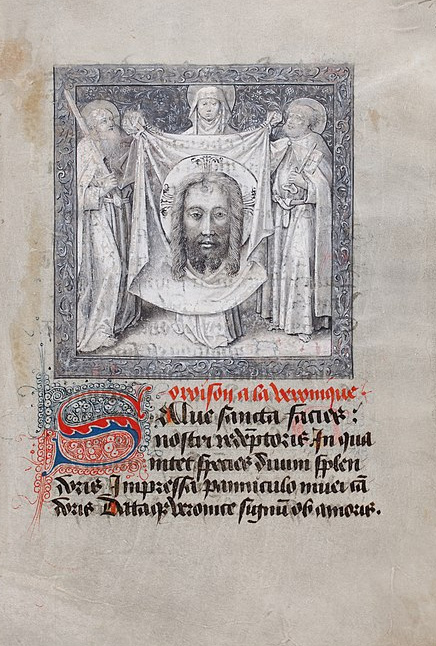 orrison a la veronique
Salue sancta facies
nostri redeptoris In qua
nitet species diuini splen
doris Impressa panniculo niuei cā
doris Dataqȝ veronice signū ob amoris.